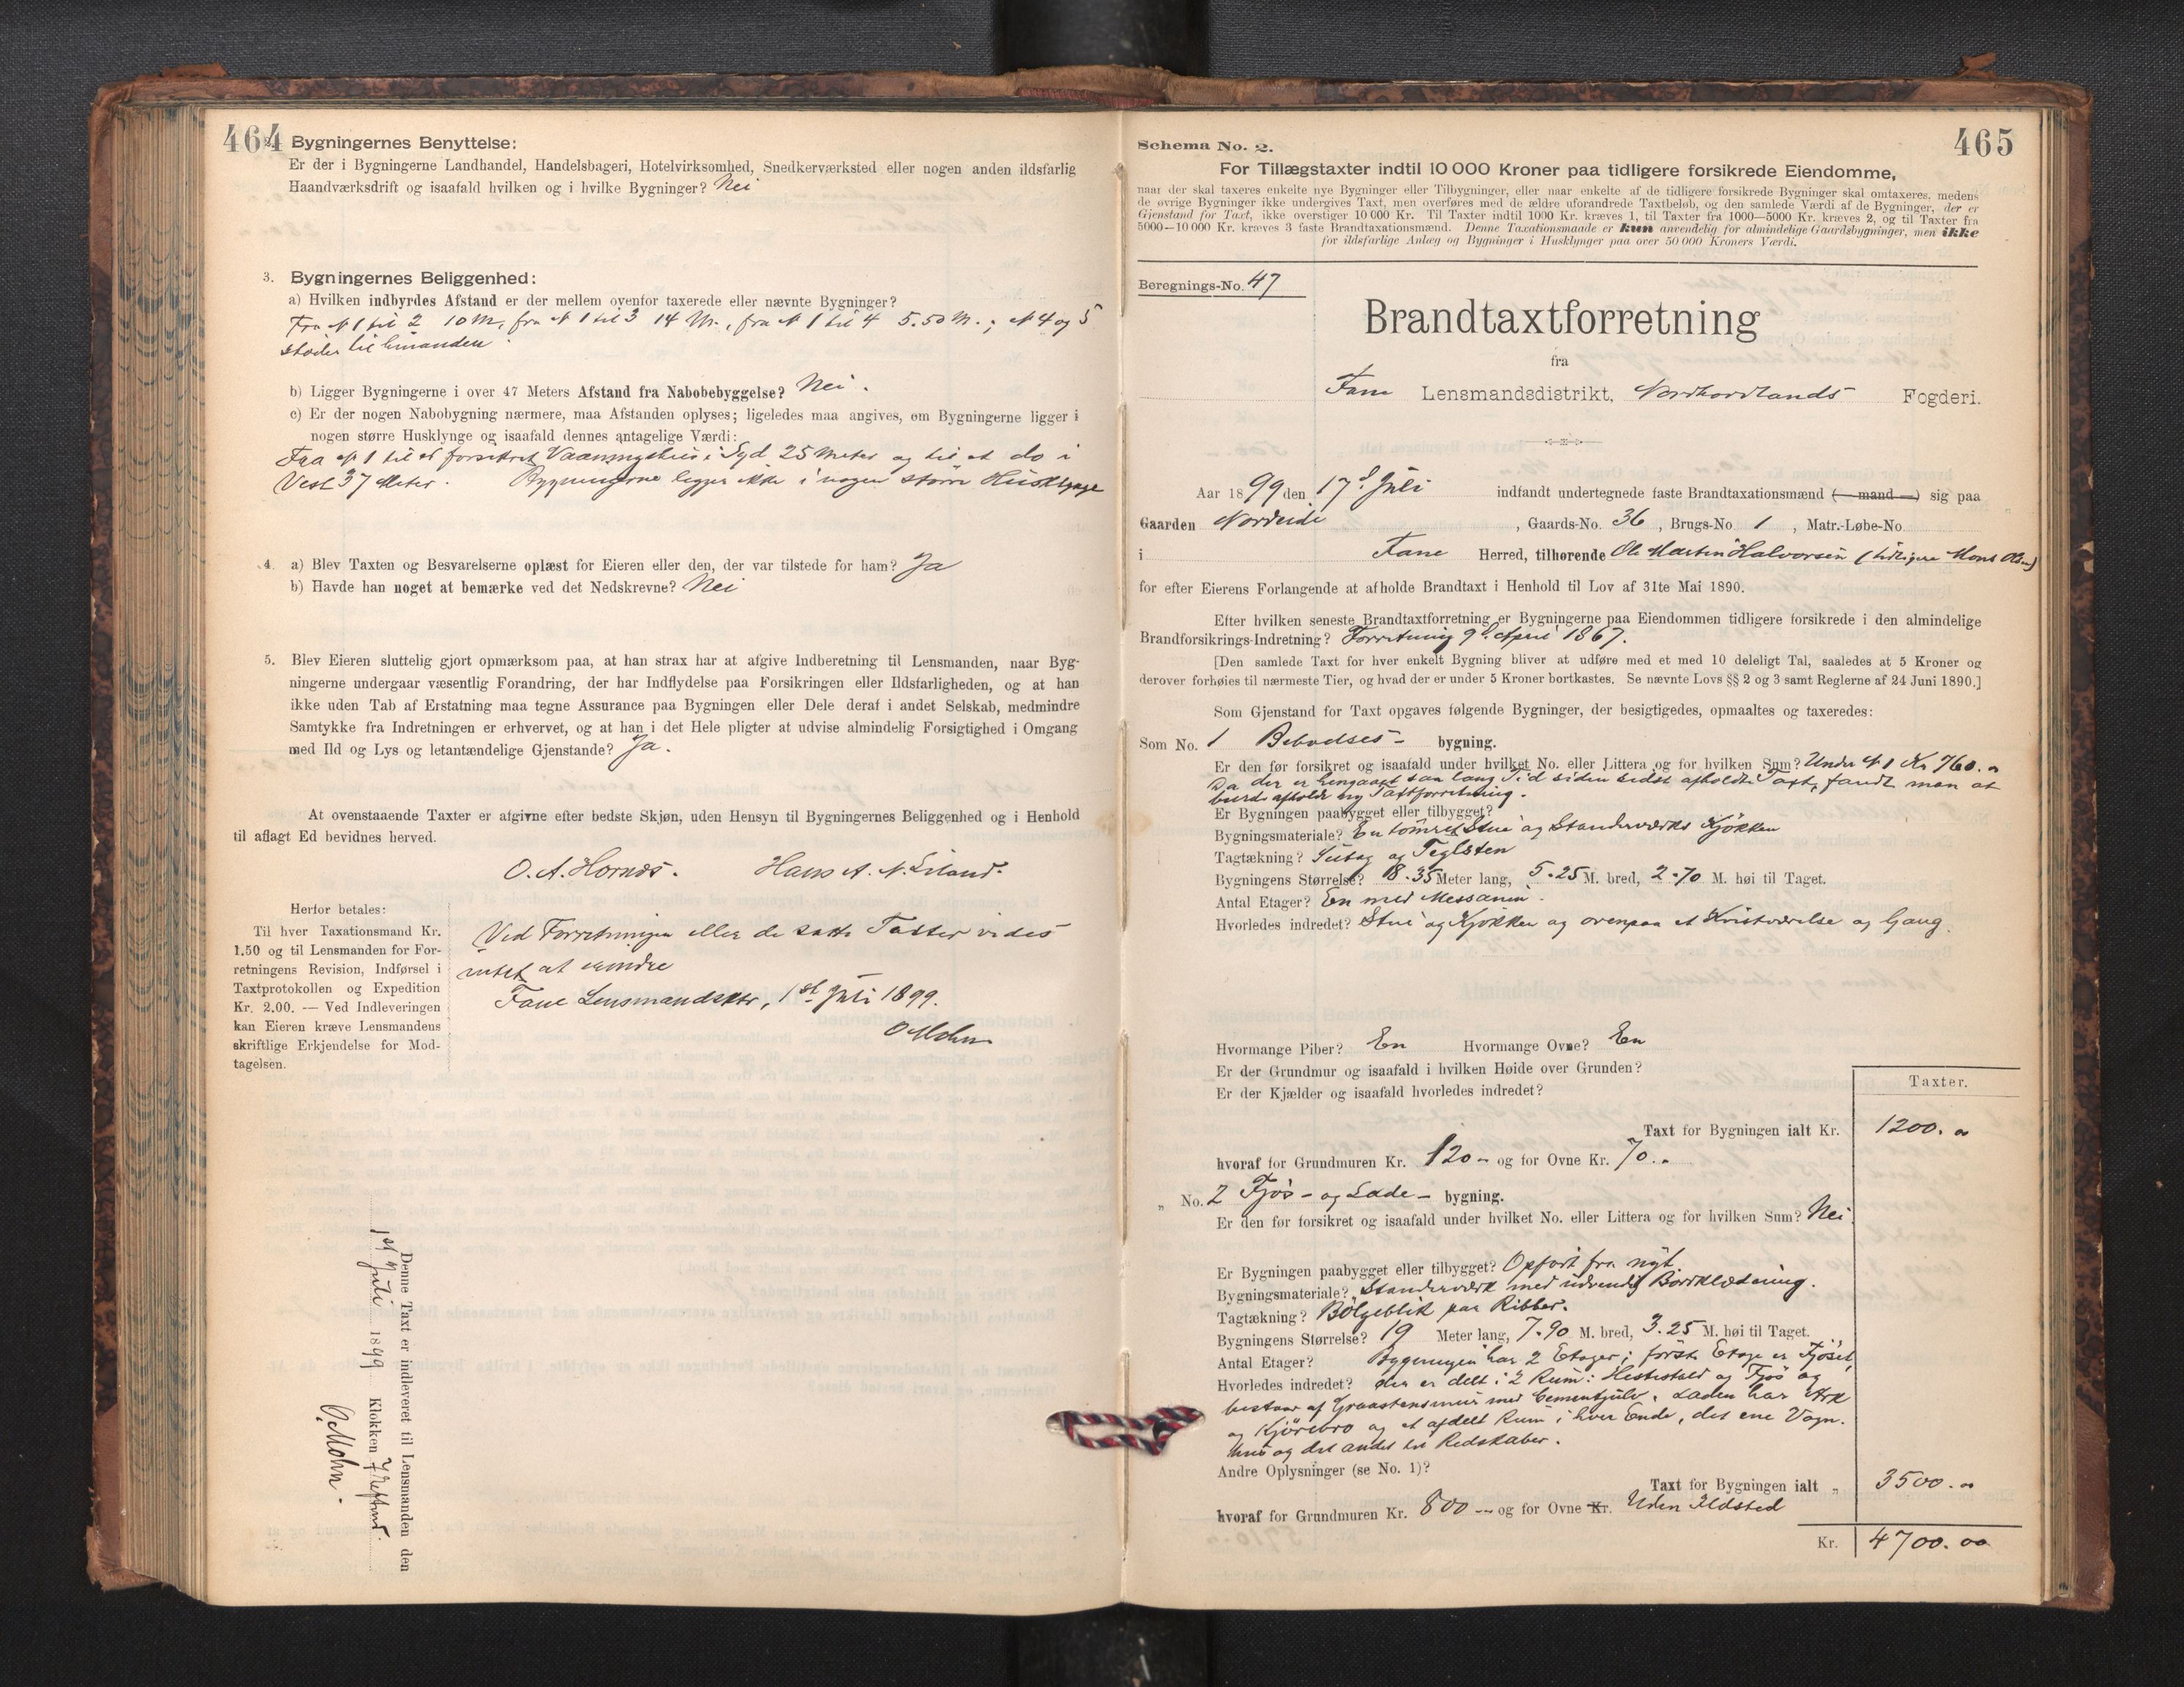 464
2. Bygningernes Benyttelse:
Er der i Bygningerne Landhandel, Handelsbageri, Hotelvirksomhed, Snedkerværksted eller nogen anden ildsfarlig
Haandværksdrift og isaafald hvilken og i hvilke Bygninger? Nei
3. Bygningernes Beliggenhed:
a) Hvilken indbyrdes Afstand er der mellem ovenfor taxerede eller nævnte Bygninger?
Fra № 1 til 2 10 M, fra № 1 til 3 14 M., fra № 1 til 4 5.50 M.; № 4 og 5
støder til hinanden.
b) Ligger Bygningerne i over 47 Meters Afstand fra Nabobebyggelse? Nei.
c) Er der nogen Nabobygning nærmere, maa Afstanden oplyses; ligeledes maa angives, om Bygningerne ligger i
nogen større Husklynge og isaafald dennes antagelige Værdi:
Fra № 1 til et forsikret Vaaningshus i Syd 25 Meter og til et do i
Vest 37 Meter. Bygningerne ligger ikke i nogen større Husklynge
4. a) Blev Taxten og Besvarelserne oplæst for Eieren eller den, der var tilstede for ham? Ja
b) Havde han noget at bemærke ved det Nedskrevne? Nei
5. Blev Eieren sluttelig gjort opmærksom paa, at han strax har at afgive Indberetning til Lensmanden, naar Byg-
ningerne undergaar væsentlig Forandring, der har Indflydelse paa Forsikringen eller Ildsfarligheden, og at han
ikke uden Tab af Erstatning maa tegne Assurance paa Bygningen eller Dele deraf i andet Selskab, medmindre
Samtykke fra Indretningen er erhvervet, og at han i det Hele pligter at udvise almindelig Forsigtighed i Omgang
med Ild og Lys og letantændelige Gjenstande? Ja.
At ovenstaaende Taxter er afgivne efter bedste Skjøn, uden Hensyn til Bygningernes Beliggenhed og i Henhold
til aflagt Ed bevidnes herved.
O. A. Hornes. Hans A. N. Liland.
Herfor betales:
Til hver Taxationsmand Kr.
1.50 og til Lensmanden for For-
retningens Revision, Indførsel i
Taxtprotokollen og Expedition
Kr. 2.00. — Ved Indleveringen
kan Eieren kræve Lensmandens
skriftlige Erkjendelse for Mod-
tagelsen.
Ved Forretningen eller de satte Taxter vides
intet at erindre
Fane Lensmandsktr, 1st Juli 1899.
O Mohn
Denne Taxt er indleveret til Lensmanden den
1st Juli 1899 Klokken 7 Efterm.
O. Mohn.
465
Schema No. 2.
For Tillægstaxter indtil 10 000 Kroner paa tidligere forsikrede Eiendomme,
naar der skal taxeres enkelte nye Bygninger eller Tilbygninger, eller naar enkelte af de tidligere forsikrede Bygninger skal omtaxeres, medens
de øvrige Bygninger ikke undergives Taxt, men overføres med de ældre uforandrede Taxtbeløb, og den samlede Værdi af de Bygninger, der er
Gjenstand for Taxt, ikke overstiger 10 000 Kr. Til Taxter indtil 1000 Kr. kræves 1, til Taxter fra 1000—5000 Kr. kræves 2, og til Taxter fra
5000—10 000 Kr. kræves 3 faste Brandtaxationsmænd. Denne Taxationsmaade er kun anvendelig for almindelige Gaardsbygninger, men ikke
for ildsfarlige Anlæg og Bygninger i Husklynger paa over 50 000 Kroners Værdi.
Beregnings-No. 47
Brandtaxtforretning
fra
Fane Lensmandsdistrikt, Nordhordlands Fogderi.
Aar 1899 den 17d Juli indfandt undertegnede faste Brandtaxationsmænd (—mand—) sig paa
Gaarden Nordeide, Gaards-No. 36, Brugs-No. 1, Matr.-Løbe-No.
i Fane Herred, tilhørende Ole Martin Halvorsen (tidligere Mons Olsen)
for efter Eierens Forlangende at afholde Brandtaxt i Henhold til Lov af 31te Mai 1890.
Efter hvilken seneste Brandtaxtforretning er Bygningerne paa Eiendommen tidligere forsikrede i den almindelige
Brandforsikrings-Indretning? Forretning 9d April 1867.
[Den samlede Taxt for hver enkelt Bygning bliver at udføre med et med 10 deleligt Tal, saaledes at 5 Kroner og
derover forhøies til nærmeste Tier, og hvad der er under 5 Kroner bortkastes. Se nævnte Lovs §§ 2 og 3 samt Reglerne af 24 Juni 1890.]
Som Gjenstand for Taxt opgaves følgende Bygninger, der besigtigedes, opmaaltes og taxeredes:
Som No. 1 Beboelses- bygning.
Er den før forsikret og isaafald under hvilket No. eller Littera og for hvilken Sum? Under № 1 Kr 760.
Da der er hengaaet saa lang Tid siden sidst afholdte Taxt, fandt man at
burde afholde ny Taxtforretning.
Er Bygningen paabygget eller tilbygget?
Bygningsmateriale? En tømret Stue og Standerværks Kjøkken
Tagtækning? Sutag og Teglsten
Bygningens Størrelse? 8.35 Meter lang, 5.25 M. bred, 2.70 M. høi til Taget.
Antal Etager? En med Messanin.
Hvorledes indredet? Stue og Kjøkken og ovenpaa et Kvistværelse og Gang.
Hvormange Piber? En Hvormange Ovne? En
Er der Grundmur og isaafald i hvilken Høide over Grunden?
Er der Kjælder og isaafald hvorledes indredet?
Taxter.
Taxt for Bygningen ialt Kr. 1200.
hvoraf for Grundmuren Kr. 120 - og for Ovne Kr. 70.
„ No. 2 Fjøs- og Lade- bygning.
Er den før forsikret og isaafald under hvilket No. eller Littera og for hvilken Sum? Nei.
Er Bygningen paabygget eller tilbygget? Opført fra nyt.
Bygningsmateriale? Standerværk med udvendig Bordklædning.
Tagtækning? Bølgeblik paa Ribber.
Bygningens Størrelse? 19 Meter lang, 7.90 M. bred, 3.25 M. høi til Taget.
Antal Etager? Bygningen har 2 Etager; første Etage er Fjøset,
Hvorledes indredet? der er delt i 2 Rum: Hestestald og Fjøs og
bestaar af Graastensmur med Cementgulv. Laden har Ark
og Kjørebro og et afdelt Rum i hver Ende, det ene Vogn-
hus og det andet til Redskaber.
Andre Oplysninger (se No. 1)?
Taxt for Bygningen ialt „ 3500.
hvoraf for Grundmuren Kr. 800 - og for Ovne Kr. Uden Ildsted
Kr. 4700.00